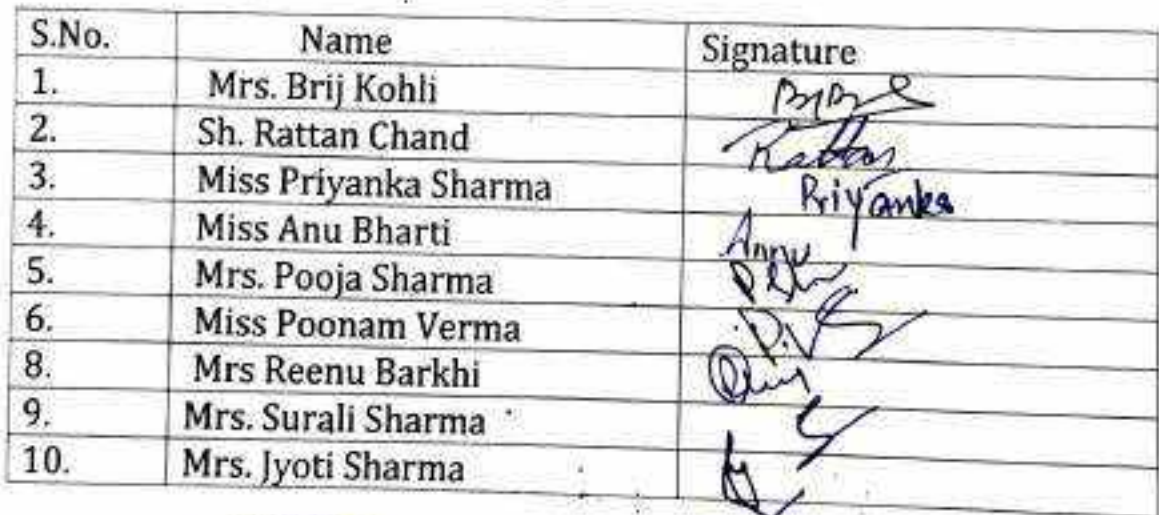 S.No. Name Signature
1. Mrs. Brij Kohli
2. Sh. Rattan Chand Rattan
3. Miss Priyanka Sharma Priyanka
4. Miss Anu Bharti Annu
5. Mrs. Pooja Sharma
6. Miss Poonam Verma
8. Mrs Reenu Barkhi
9. Mrs. Surali Sharma
10. Mrs. Jyoti Sharma